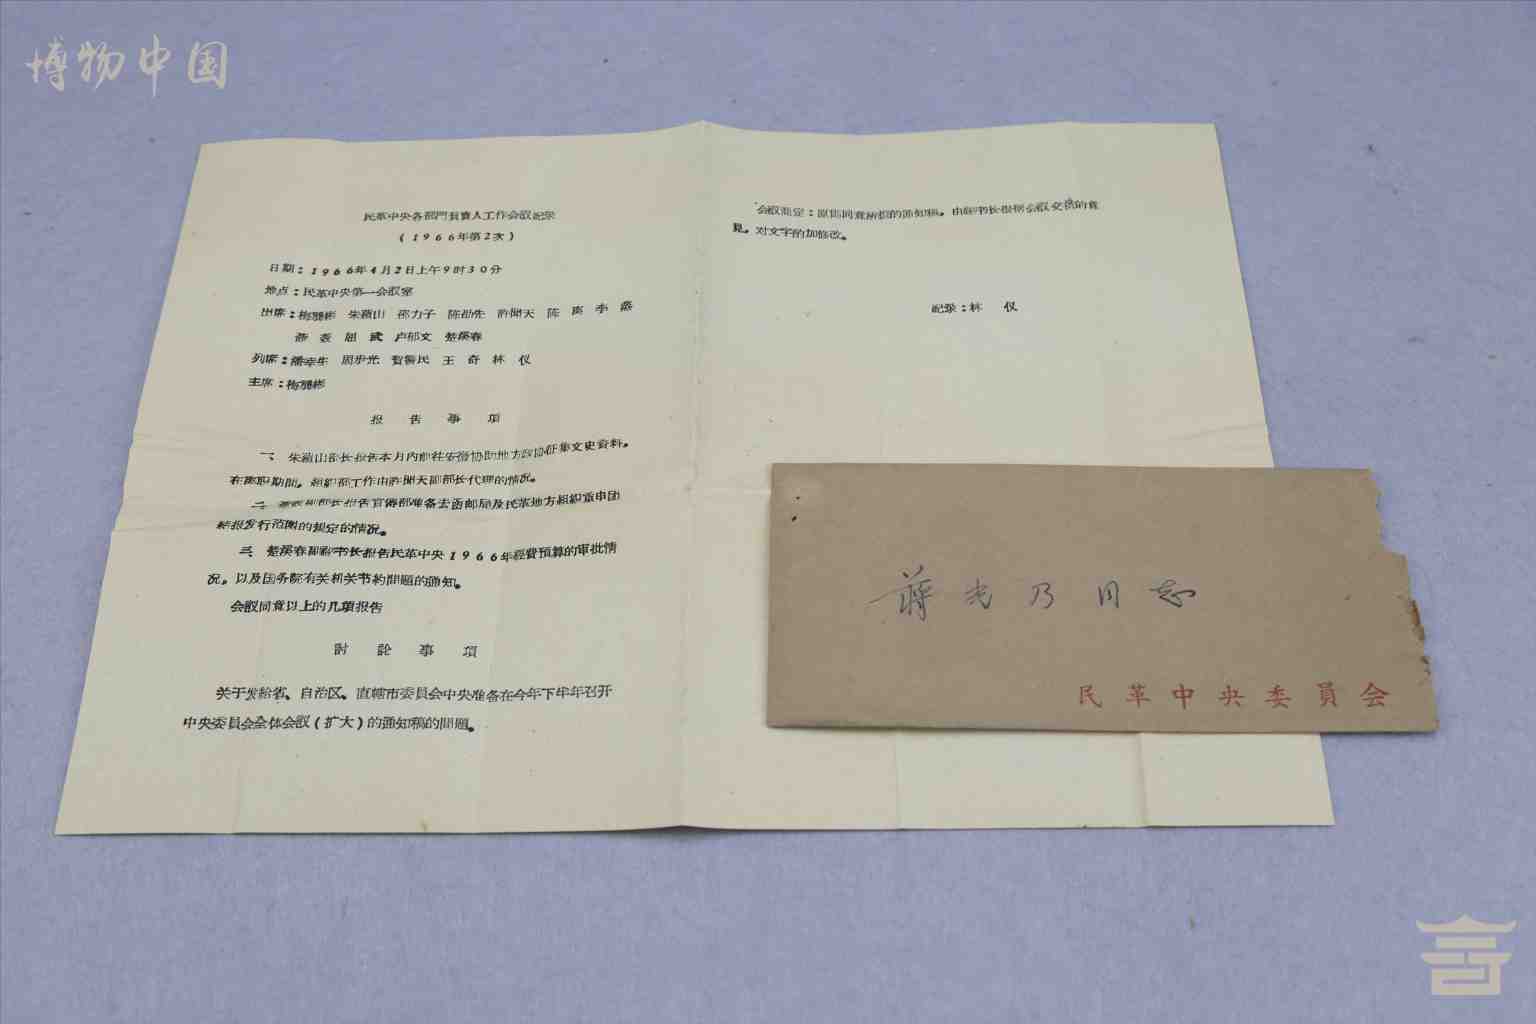 博物中国
民革中央各部門負責人工作会议紀录
(1966年第2次)
日期:1966年4月2日上午9时30分
地点:民革中央第一会议室
出席:梅龔彬 朱蘊山 邵力子 陈劭先 許聞天 陈 离 李 蒸
屈 武 卢郁文 楚溪春
列席:潘幸生 周步光 賀善民 王 奇 林 仪
主席:梅龔彬
报告事項
一、朱蘊山部长报告本月内前往安徽协助地方政协征集文史資料。
在离职期間,組織部工作由許聞天副部长代理的情况。
部长报告宣傳部准备去函邮局及民革地方組織重申团
結报发行范围的規定的情况。
三、楚溪春副秘书长报告民革中央1966年經費預算的审批情
况,以及国务院有关机关节約問題的通知。
会议同意以上的几項报告
討論事項
关于发給省、自治区、直轄市委員会中央准备在今年下半年召开
中央委員会全体会议(扩大)的通知稿的問題。
会议商定:原則同意所拟的通知稿,由秘书长根据会议交換的意
見,对文字酌加修改。
紀录:林 仪
蔣光乃同志
民革中央委員会